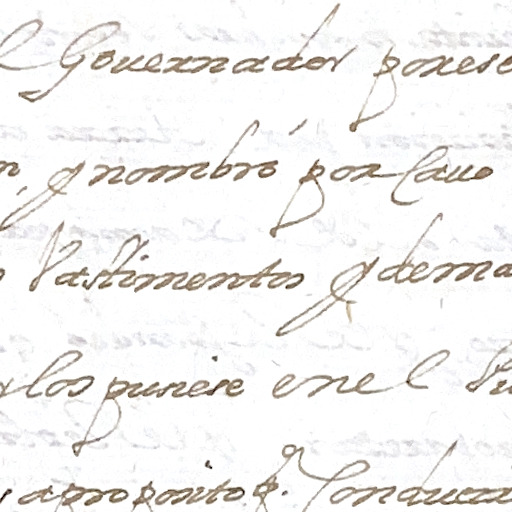 l Gouernador por ese
n, y nombró por Cauo
s Vastimentos y dema
los pusiese en el Vu
aproposito pª. Conduzi